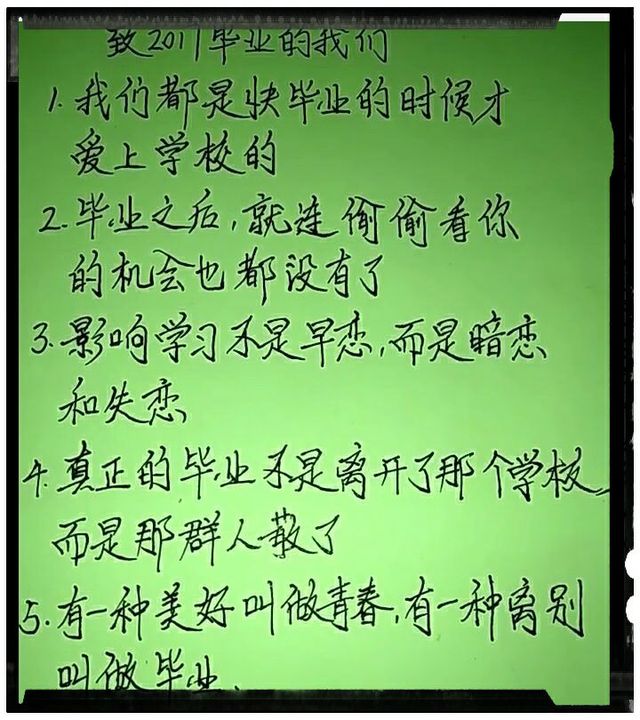 致2011毕业的我们
1.我们都是快毕业的时候才
爱上学校的
2.毕业之后,就连偷偷看你
的机会也都没有了
3.影响学习不是早恋,而是暗恋
和失恋
4.真正的毕业不是离开了那个学校,
而是那群人散了
5.有一种美好叫做青春,有一种离别
叫做毕业.